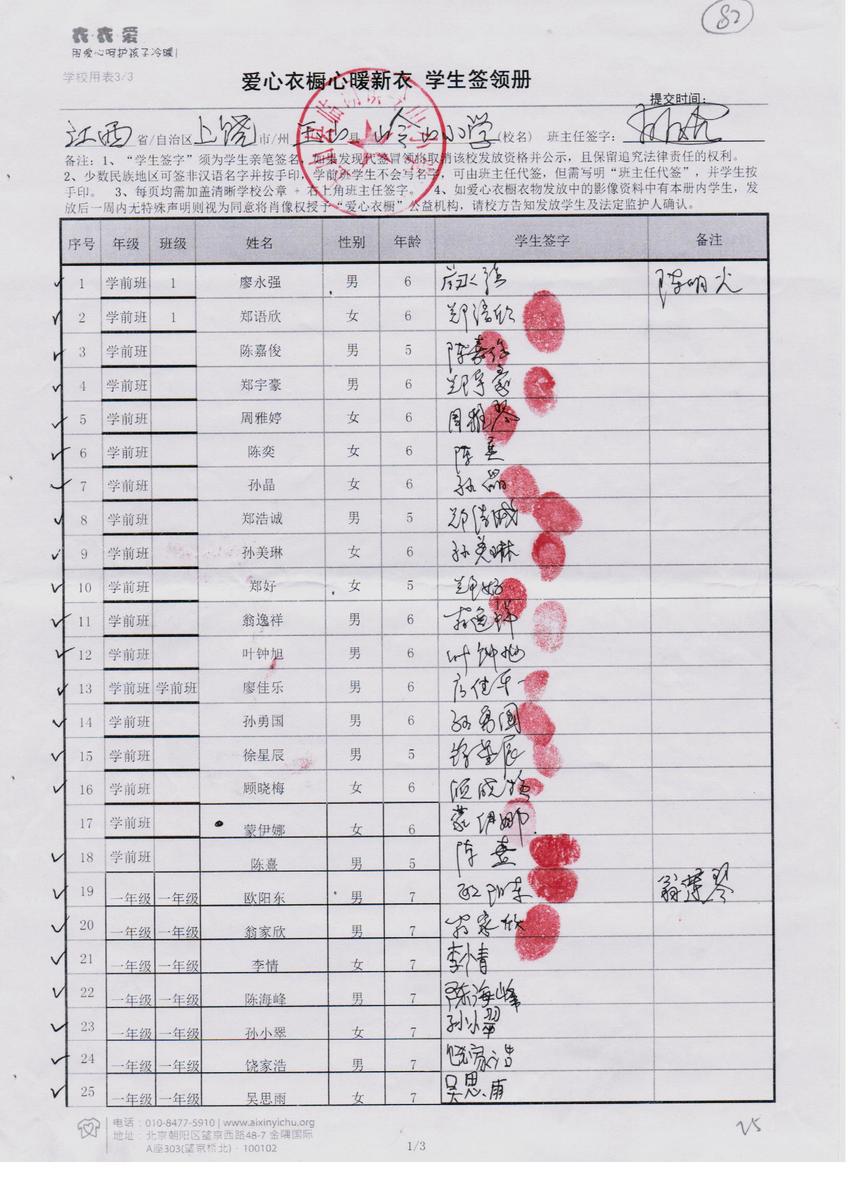 82
衣·衣爱
用爱心呵护孩子冷暖!
学校用表3/3
爱心衣橱心暖新衣 学生签领册
提交时间:
江西省/自治区上饶市/州玉山县山岭山小学(校名) 班主任签字:
备注:1、“学生签字”须为学生亲笔签名,如果发现代签冒领将取消该校发放资格并公示,且保留追究法律责任的权利。
2、少数民族地区可签非汉语名字并按手印,学前班学生不会写名字,可由班主任代签,但需写明“班主任代签”,并学生按
手印。 3、每页均需加盖清晰学校公章 + 右上角班主任签字。 4、如爱心衣橱衣物发放中的影像资料中有本册内学生,发
放后一周内无特殊声明则视为同意将肖像权授于“爱心衣橱”公益机构,请校方告知发放学生及法定监护人确认。
序号 年级 班级 姓名 性别 年龄 学生签字 备注
1 学前班 1 廖永强 男 6 陈明光
2 学前班 1 郑语欣 女 6 郑语欣
3 学前班 陈嘉俊 男 5 陈嘉俊
4 学前班 郑宇豪 男 6 郑宇豪
5 学前班 周雅婷 女 6 周雅琴
6 学前班 陈奕 女 6 陈奕
7 学前班 孙晶 女 6 孙晶
8 学前班 郑浩诚 男 5 郑浩诚
9 学前班 孙美琳 女 6 孙美琳
10 学前班 郑好 女 5 郑好
11 学前班 翁逸祥 男 6 翁逸祥
12 学前班 叶钟旭 男 6 叶钟旭
13 学前班 学前班 廖佳乐 男 6
14 学前班 孙勇国 男 6 孙勇国
15 学前班 徐星辰 男 5 徐星辰
16 学前班 顾晓梅 女 6 顾晓梅
17 学前班 蒙伊娜 女 6 蒙伊娜
18 学前班 陈熹 男 5 陈熹
19 一年级 一年级 欧阳东 男 7 欧阳东 翁慧琴
20 一年级 一年级 翁家欣 男 7 翁家欣
21 一年级 一年级 李情 女 7 李情
22 一年级 一年级 陈海峰 男 7 陈海峰
23 一年级 一年级 孙小翠 女 7 孙小翠
24 一年级 一年级 饶家浩 男 7 饶家浩
25 一年级 一年级 吴思雨 女 7 吴思雨
电话:010-8477-5910 | www.aixinyichu.org
地址:北京朝阳区望京西路48-7 金隅国际
A座303(望京桥北)·100102
1/3
25